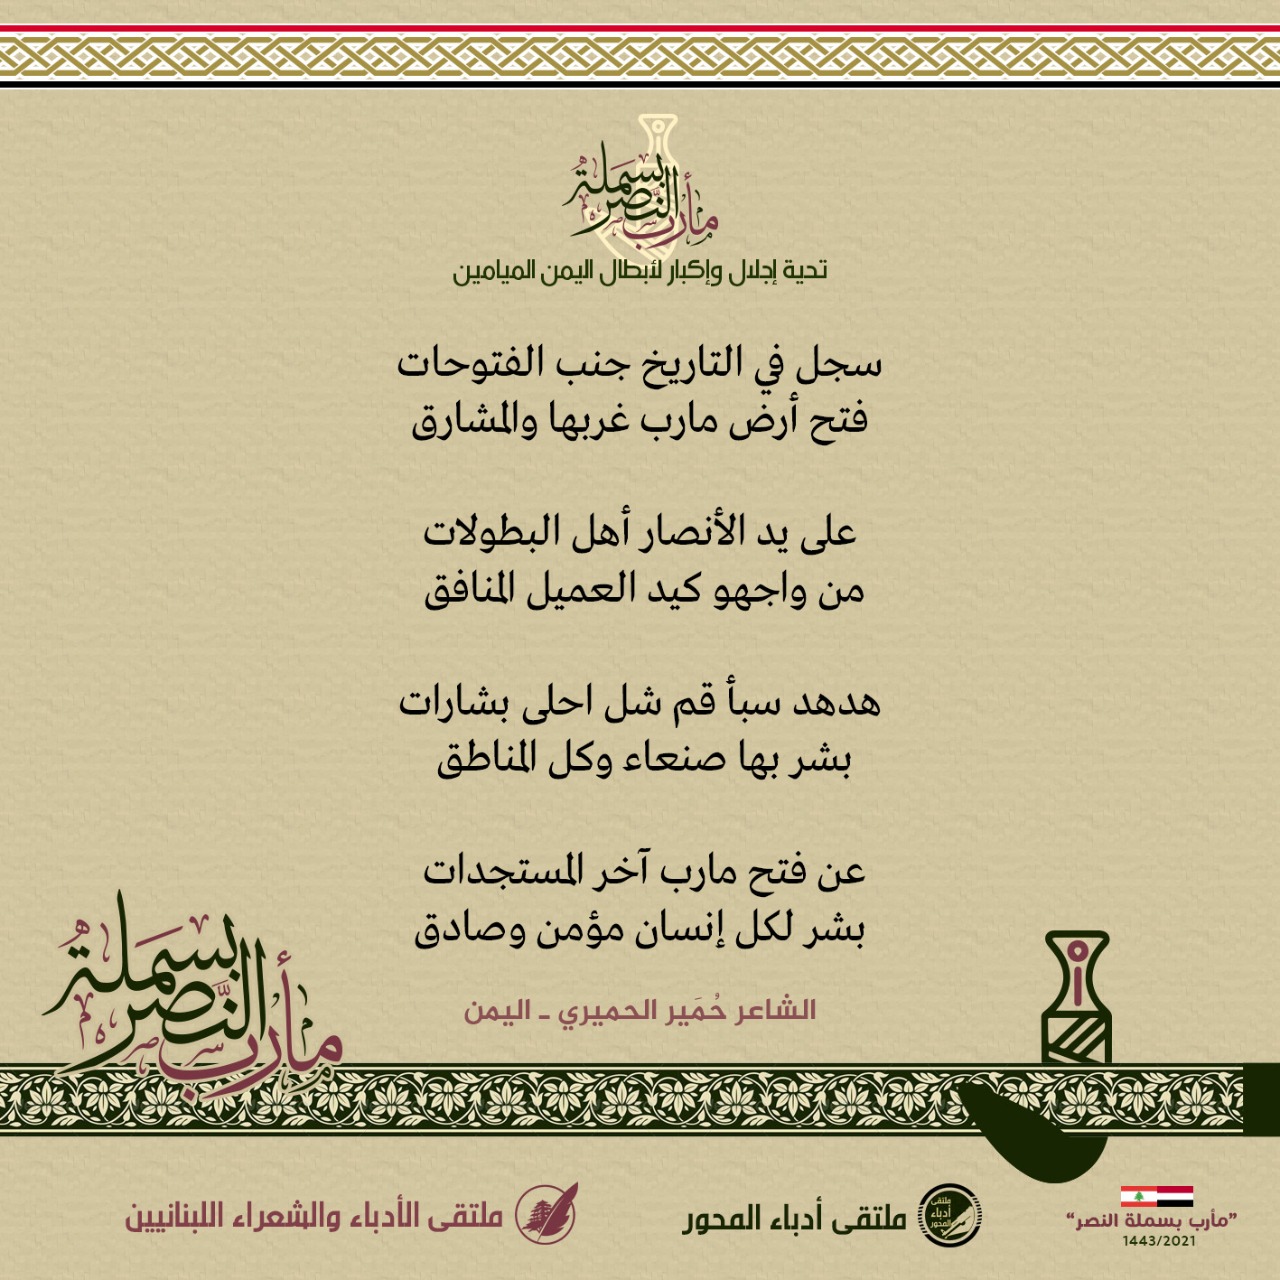 مأرب بسملة النصر
تحية إجلال وإكبار لأبطال اليمن الميامين
سجل في التاريخ جنب الفتوحات
فتح أرض مارب غربها والمشارق
على يد الأنصار أهل البطولات
من واجهو كيد العميل المنافق
هدهد سبأ قم شل احلى بشارات
بشر بها صنعاء وكل المناطق
عن فتح مارب آخر المستجدات
بشر لكل إنسان مؤمن وصادق
الشاعر حُمَير الحميري - اليمن
مأرب بسملة النصر
"مأرب بسملة النصر"
1443/2021
ملتقى أدباء المحور
ملتقى أدباء المحور
ملتقى الأدباء والشعراء اللبنانيين